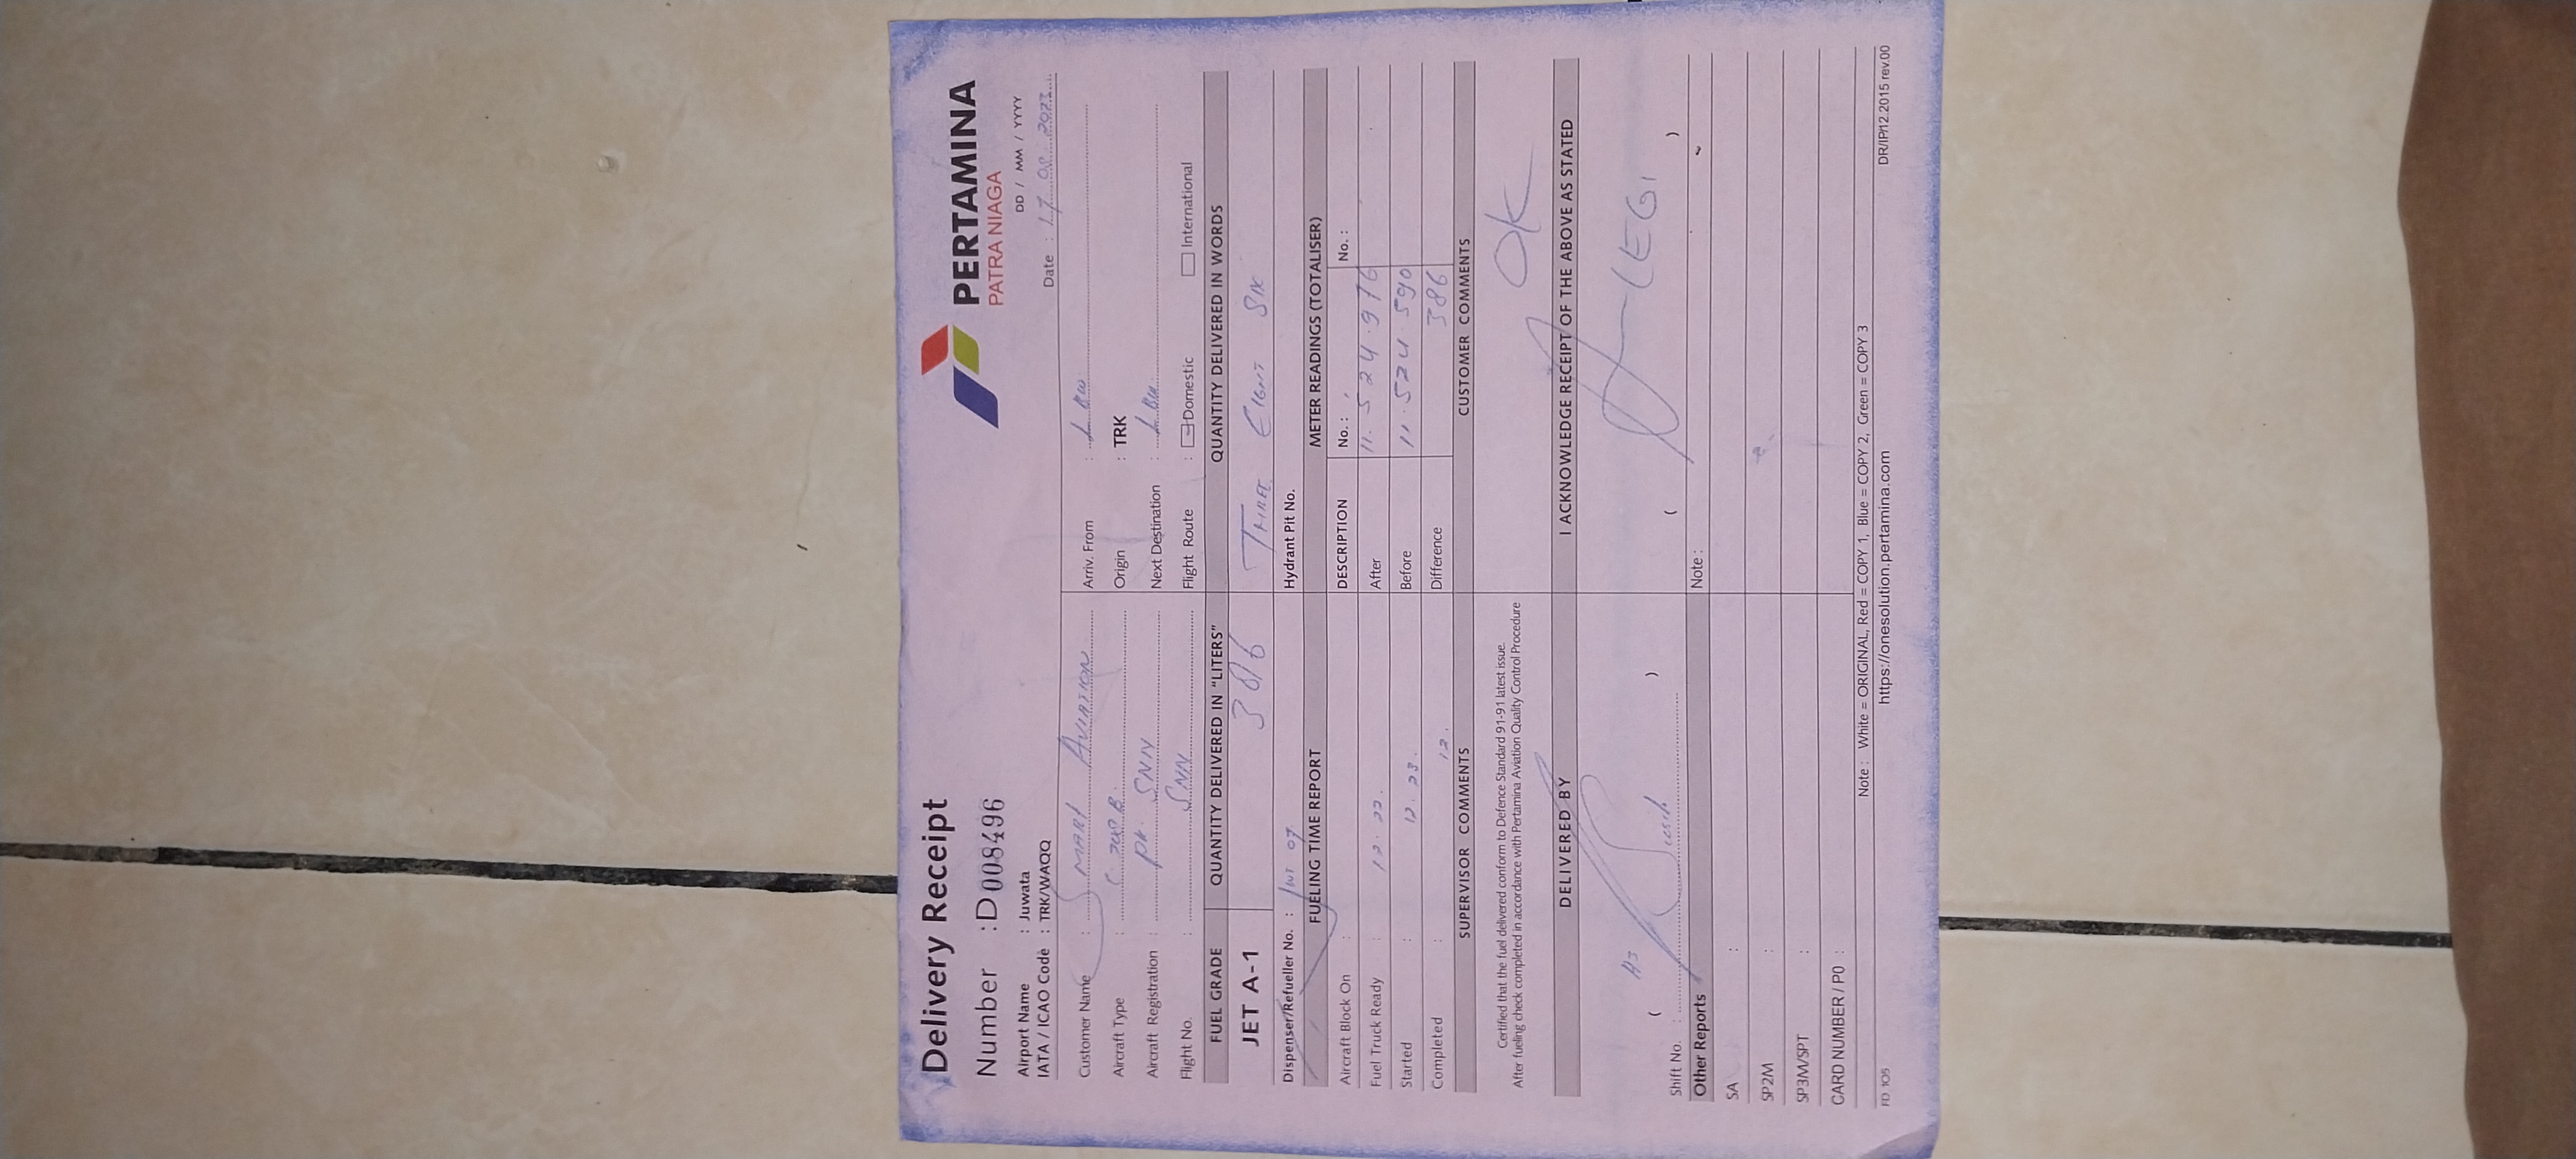 Delivery Receipt
PERTAMINA
PATRA NIAGA
Number : D008496
Airport Name : Juwata
DD / MM / YYYY
IATA / ICAO Code : TRK/WAQQ
Date : 17. 08. 2023
Customer Name : SMART AVIATION
Arriv. From :
Aircraft Type : C 208 B.
Origin : TRK
Aircraft Registration : PK. SNN
Next Destination :
Flight No. : SNN
Flight Route : Domestic International
FUEL GRADE QUANTITY DELIVERED IN "LITERS" QUANTITY DELIVERED IN WORDS
JET A-1 386 THREE EIGHT SIX
Dispenser/Refueller No. : 07
Hydrant Pit No.
FUELING TIME REPORT METER READINGS (TOTALISER)
Aircraft Block On :
DESCRIPTION No. : No. :
Fuel Truck Ready : 12. 22.
After 11. 524. 976
Started : 12. 23.
Before 11. 524. 590
Completed : 12.
Difference 386
SUPERVISOR COMMENTS CUSTOMER COMMENTS
Certified that the fuel delivered conform to Defence Standard 91-91 latest issue.
After fueling check completed in accordance with Pertamina Aviation Quality Control Procedure
OK
DELIVERED BY I ACKNOWLEDGE RECEIPT OF THE ABOVE AS STATED
LEGI
( )
( )
Shift No. :
Other Reports
Note :
SA :
SP2M :
SP3M/SPT :
CARD NUMBER / PO :
Note : White = ORIGINAL, Red = COPY 1, Blue = COPY 2, Green = COPY 3
FD 105
https://onesolution.pertamina.com
DR/IP/12.2015 rev.00